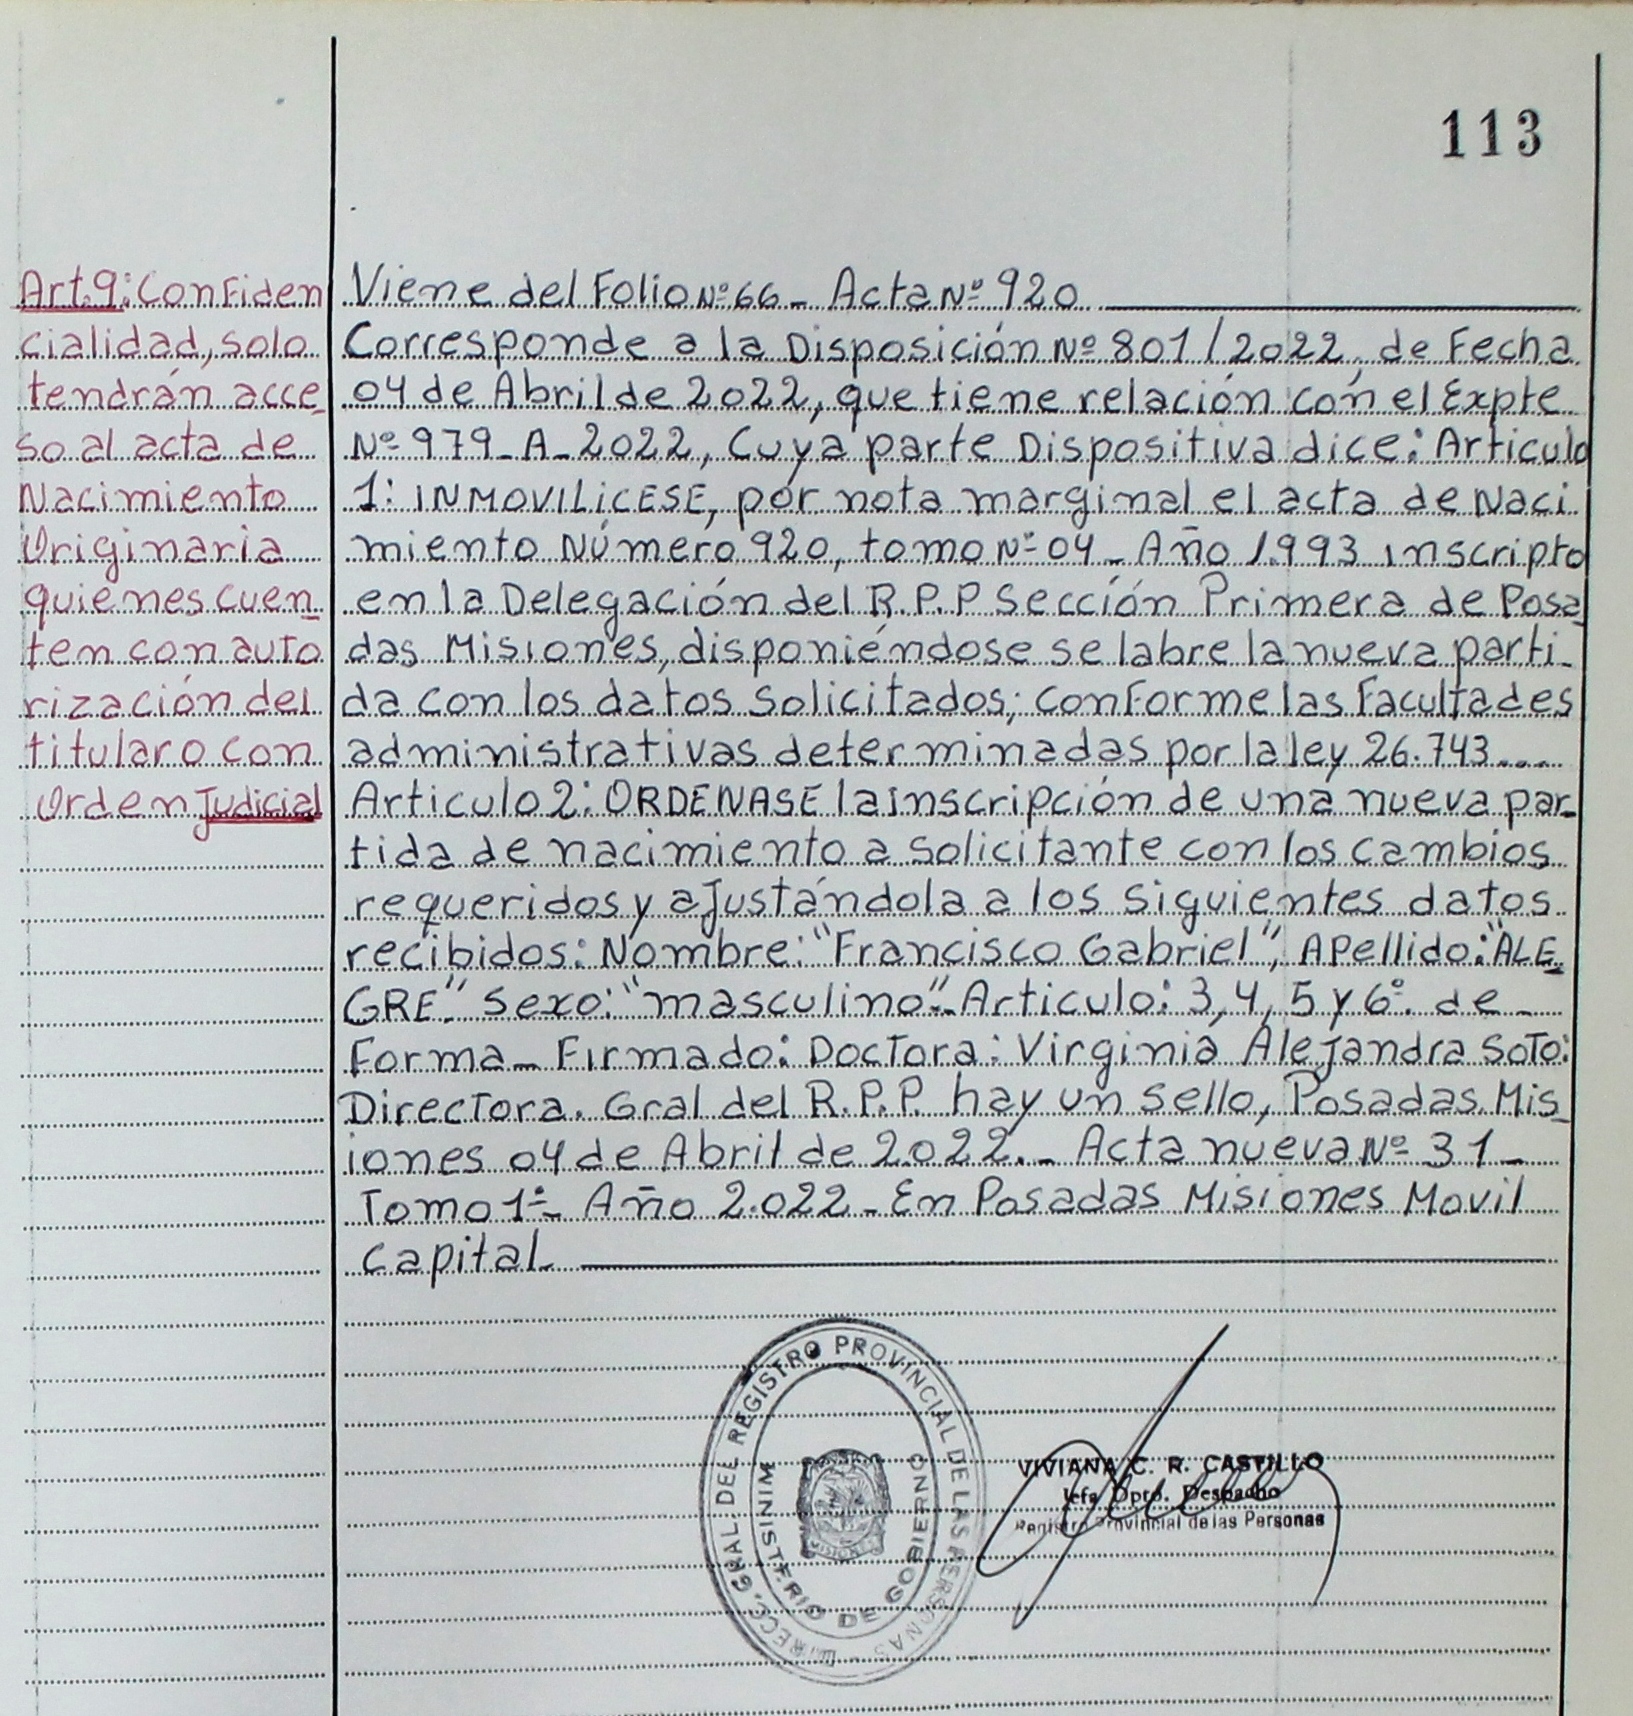 113
Art.9: Confiden
cialidad, solo
tendrán acce_
so al acta de
Nacimiento
Originaria
quienes cuen_
ten con auto
rización del
titular o con
Orden Judicial
Viene del Folio Nº 66_ Acta Nº 920
Corresponde a la Disposición Nº 801/2022, de Fecha
04 de Abril de 2022, que tiene relación con el Expte
Nº 979_A_2022, Cuya parte Dispositiva dice: Articulo
1: INMOVILICESE, por nota marginal el acta de Naci
miento Número 920, tomo Nº 04_ Año 1.993 inscripto
en la Delegación del R.P.P Sección Primera de Posa_
das Misiones, disponiéndose se labre la nueva parti_
da con los datos solicitados; conforme las Facultades
administrativas determinadas por la ley 26.743...
Articulo 2: ORDENASE la inscripción de una nueva par_
tida de nacimiento a solicitante con los cambios
requeridos y ajustándola a los siguientes datos
recibidos: Nombre: "Francisco Gabriel", Apellido: "ALE_
GRE" Sexo: "masculino". Articulo: 3, 4, 5 y 6º. de _
Forma_ Firmado: Doctora: Virginia Alejandra Soto:
Directora. Gral del R.P.P. hay un sello, Posadas. Mis_
iones 04 de Abril de 2.022._ Acta nueva Nº 31_
Tomo 1º_ Año 2.022_ En Posadas Misiones Movil
Capital_
DIRECC. GRAL. DEL REGISTRO PROVINCIAL DE LAS PERSONAS
MINISTERIO DE GOBIERNO
MISIONES
VIVIANA C. R. CASTILLO
Jefa Dpto. Despacho
Registro Provincial de las Personas